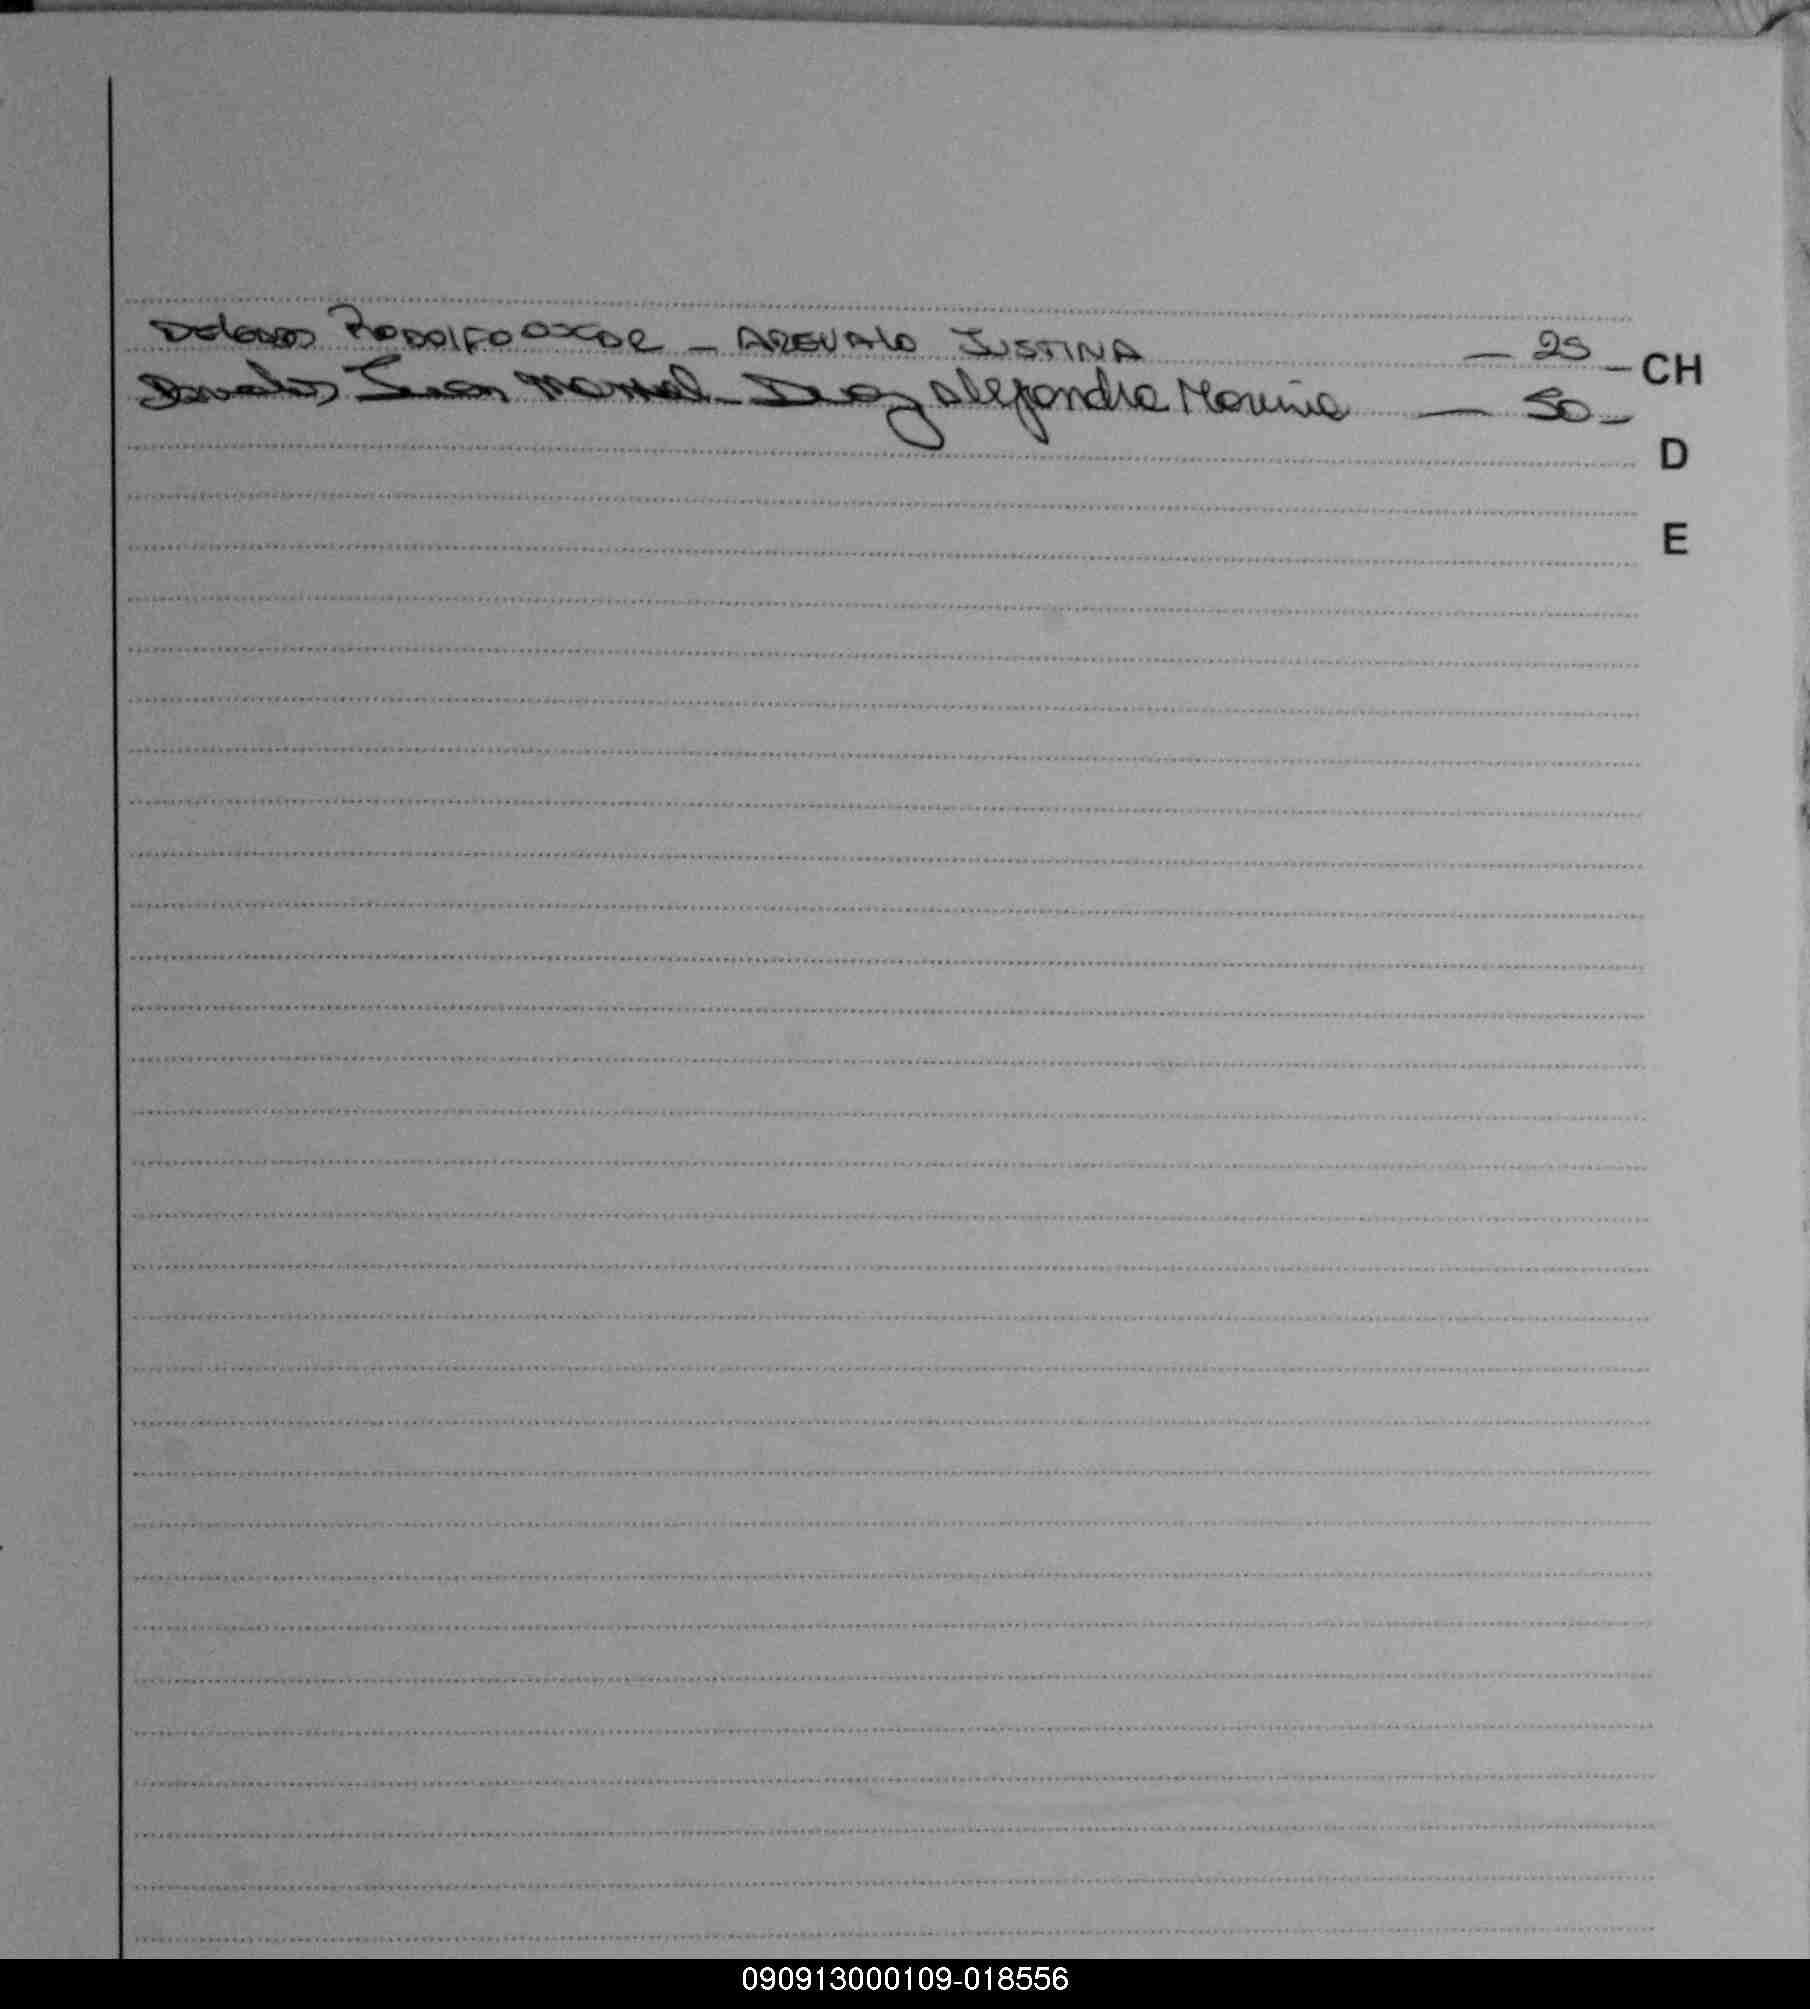 DELGADO RODOLFO OSCAR – AREVALO JUSTINA — 25 – CH
Juan Manuel – Diaz Alejandra Marina — 50 –
D
E
090913000109-018556